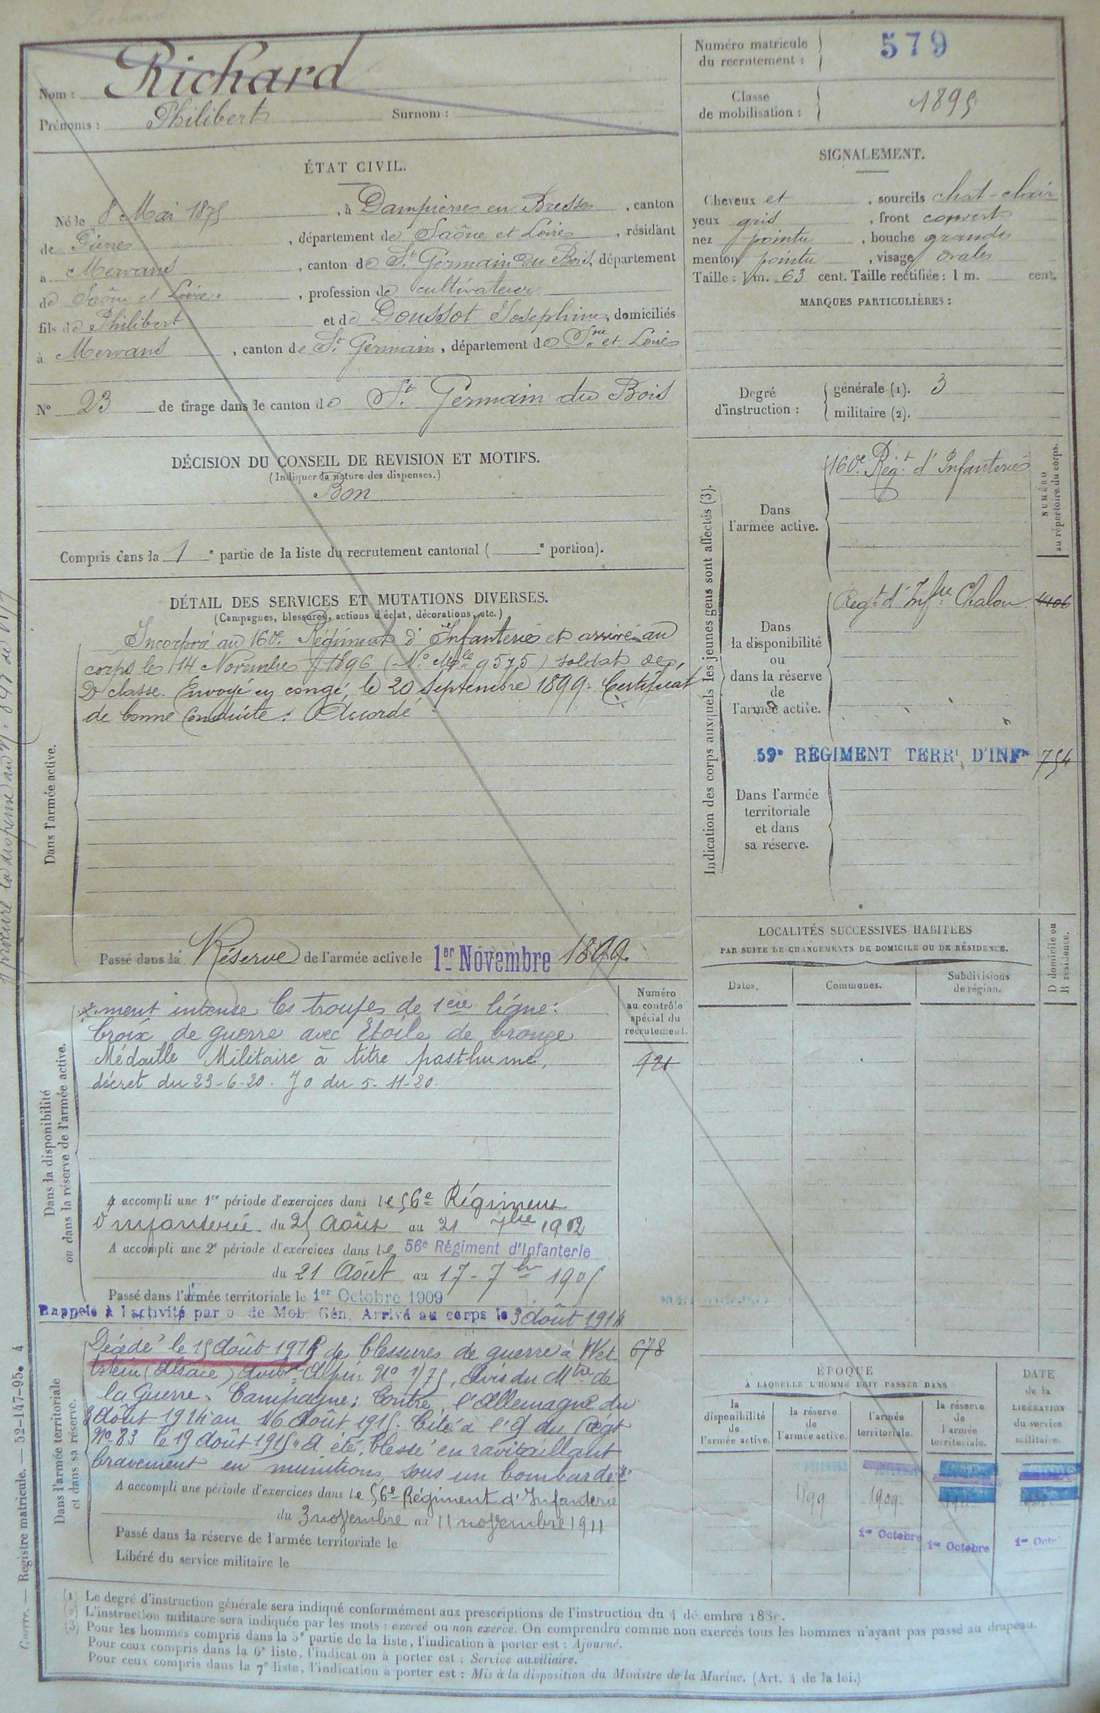 Nom : Richard
Prénoms : Philibert Surnom :
Numéro matricule
du recrutement : 579
Classe
de mobilisation : 1895
ÉTAT CIVIL.
Né le 8 Mai 1875, à Dampierre en Bresse, canton
de Pierre, département de Saône et Loire, résidant
à Mervans, canton de St Germain du Bois, département
de Saône et Loire, profession de cultivateur
fils de Philibert et de Doussot Joséphine, domiciliés
à Mervans, canton de St Germain, département de Sne et Loire
N° 23 de tirage dans le canton de St Germain du Bois
SIGNALEMENT.
Cheveux et, sourcils chat-clair
yeux gris, front couvert
nez pointu, bouche grande
menton pointu, visage ovale
Taille : 1 m. 63 cent. Taille rectifiée : 1 m. cent.
MARQUES PARTICULIÈRES :
Degré
d'instruction :
générale (1). 3
militaire (2).
DÉCISION DU CONSEIL DE REVISION ET MOTIFS.
(Indiquer la nature des dispenses.)
Bon
Compris dans la 1e partie de la liste du recrutement cantonal ( e portion).
DÉTAIL DES SERVICES ET MUTATIONS DIVERSES.
(Campagnes, blessures, actions d'éclat, décorations, etc.)
Dans l'armée active.
Incorporé au 160e Régiment d'Infanterie et arrivé au
corps le 14 Novembre 1896 (No Mle 9575) soldat de
2e classe. Envoyé en congé, le 20 Septembre 1899. Certificat
de bonne conduite : Accordé
Passé dans la Réserve de l'armée active le 1er Novembre 1899.
Indication des corps auxquels les jeunes gens sont affectés (3).
NUMÉRO
au répertoire du corps.
Dans
l'armée active.
160e Régt d'Infanterie
Dans
la disponibilité
ou
dans la réserve
de
l'armée active.
Regt d'Infrie Chalon
59e RÉGIMENT TERRl D'INFie 754
Dans l'armée
territoriale
et dans
sa réserve.
LOCALITÉS SUCCESSIVES HABITÉES
PAR SUITE DE CHANGEMENTS DE DOMICILE OU DE RÉSIDENCE.
Dates. Communes. Subdivisions
de région.
D domicile ou
R résidence.
Dans la disponibilité
ou dans la réserve de l'armée active.
Numéro
au contrôle
spécial du
recrutement.
921
*ment intense les troupes de 1ère ligne :
Croix de guerre avec Étoile de bronze
Médaille Militaire à titre posthume,
décret du 23-6-20. JO du 5-11-20.
A accompli une 1re période d'exercices dans le 56e Régiment
d'Infanterie du 25 Août au 21 7bre 1902
A accompli une 2e période d'exercices dans le 56e Régiment d'Infanterie
du 21 Août au 17-7bre 1905
Passé dans l'armée territoriale le 1er Octobre 1909
Rappelé à l'activité par o de Mob. Gén. Arrivé au corps le 3 Août 1914
Dans l'armée territoriale
et dans sa réserve.
678
Décédé le 15 Août 1915 de blessures de guerre à Wett
stein (Alsace) Alpin No 1/75, Avis du Mtre de
la Guerre. Campagne : Contre l'Allemagne du
3 Août 1914 au 16 Août 1915. Cité à l'O du Régt
No 83 le 19 Août 1915. A été blessé en ravitaillant
bravement en munitions, sous un bombarde*
A accompli une période d'exercices dans le 56e Régiment d'Infanterie
du 3 novembre au 11 novembre 1911
Passé dans la réserve de l'armée territoriale le
Libéré du service militaire le
ÉPOQUE
A LAQUELLE L'HOMME DOIT PASSER DANS
la
disponibilité
de
l'armée active.
la réserve
de
l'armée active.
l'armée
territoriale.
la réserve
de
l'armée
territoriale.
DATE
de la
LIBÉRATION
du service
militaire.
1899 1909
1er Octobre 1er Octobre 1er Oct
(1) Le degré d'instruction générale sera indiqué conformément aux prescriptions de l'instruction du 4 décembre 1889.
(2) L'instruction militaire sera indiquée par les mots : exercé ou non exercé. On comprendra comme non exercés tous les hommes n'ayant pas passé au drapeau.
(3) Pour les hommes compris dans la 5e partie de la liste, l'indication à porter est : Ajourné.
Pour ceux compris dans la 6e liste, l'indication à porter est : Service auxiliaire.
Pour ceux compris dans la 7e liste, l'indication à porter est : Mis à la disposition du Ministre de la Marine. (Art. 4 de la loi.)
Guerre. — Registre matricule. — 52-147-95. 4